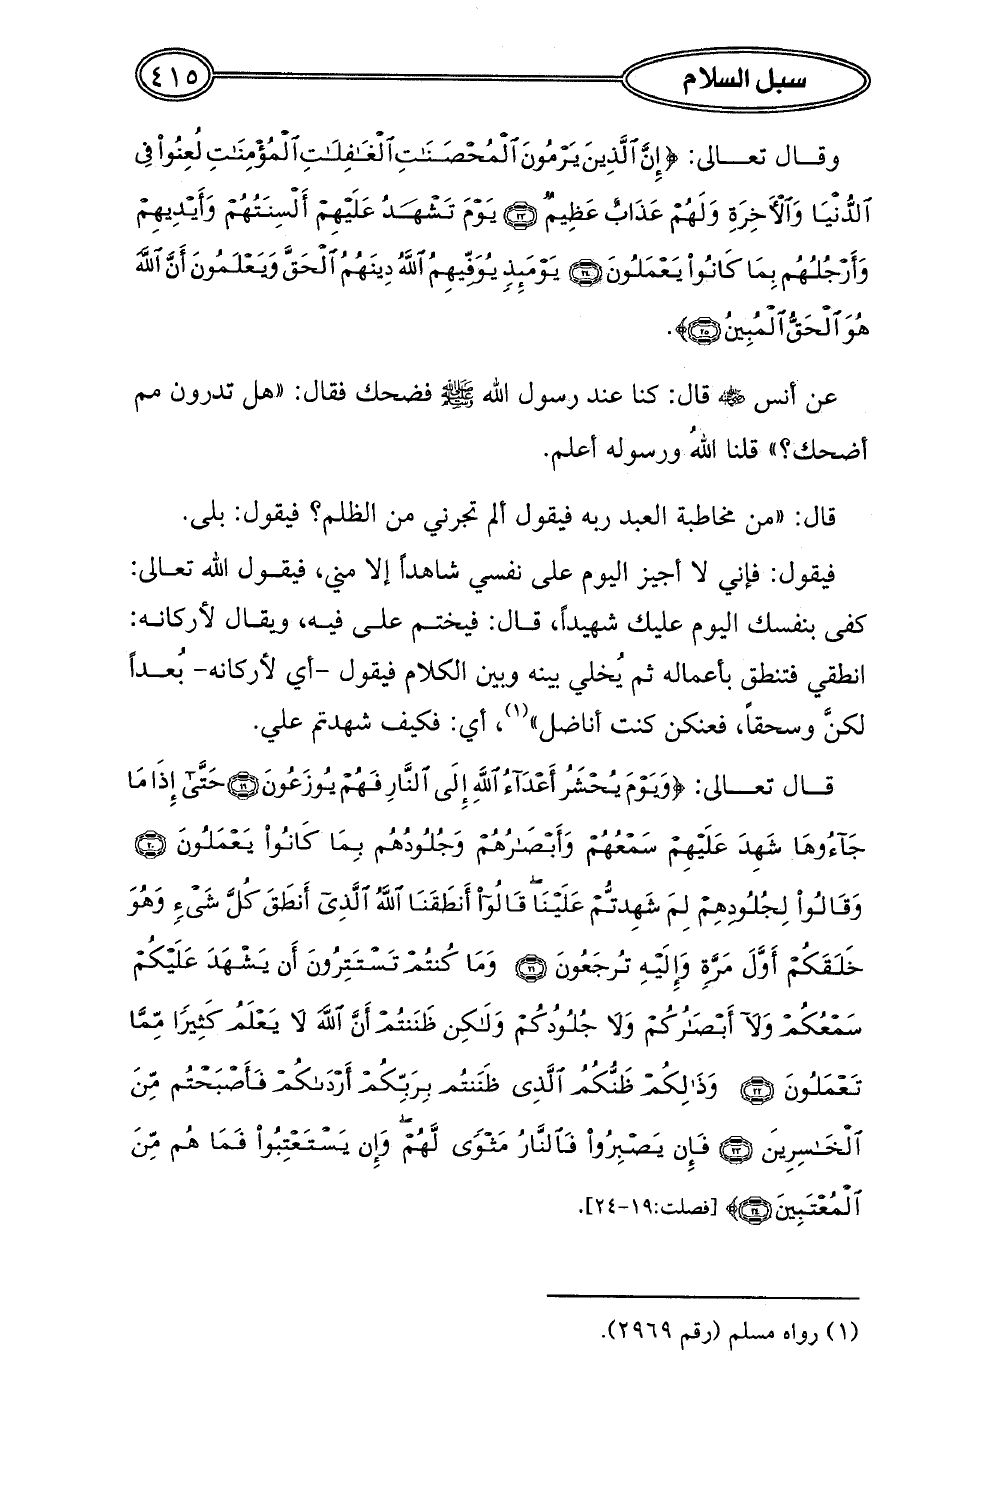 سبل السلام
٤١٥
وقـال تعـالى: ﴿إِنَّ ٱلَّذِينَ يَرْمُونَ ٱلْمُحْصَنَـٰتِ ٱلْغَـٰفِلَـٰتِ ٱلْمُؤْمِنَـٰتِ لُعِنُوا۟ فِى
ٱلدُّنْيَا وَٱلْـَٔاخِرَةِ وَلَهُمْ عَذَابٌ عَظِيمٌ ﴿٢٣﴾ يَوْمَ تَشْهَدُ عَلَيْهِمْ أَلْسِنَتُهُمْ وَأَيْدِيهِمْ
وَأَرْجُلُهُم بِمَا كَانُوا۟ يَعْمَلُونَ ﴿٢٤﴾ يَوْمَئِذٍ يُوَفِّيهِمُ ٱللَّهُ دِينَهُمُ ٱلْحَقَّ وَيَعْلَمُونَ أَنَّ ٱللَّهَ
هُوَ ٱلْحَقُّ ٱلْمُبِينُ ﴿٢٥﴾﴾.
عن أنس ﵁ قال: كنا عند رسول الله ﷺ فضحك فقال: «هل تدرون مم
أضحك؟» قلنا اللهُ ورسوله أعلم.
قال: «من مخاطبة العبد ربه فيقول ألم تجرني من الظلم؟ فيقول: بلى.
فيقول: فإني لا أجيز اليوم على نفسي شاهداً إلا مني، فيقـول الله تعـالى:
كفى بنفسك اليوم عليك شهيداً، قـال: فيختـم علـى فيـه، ويقـال لأركانـه:
انطقي فتنطق بأعماله ثم يُخلي بينه وبين الكلام فيقول -أي لأركانه- بُعـداً
لكنَّ وسحقاً، فعنكن كنت أناضل»(١)، أي: فكيف شهدتم علي.
قـال تعـالى: ﴿وَيَوْمَ يُحْشَرُ أَعْدَآءُ ٱللَّهِ إِلَى ٱلنَّارِ فَهُمْ يُوزَعُونَ ﴿١٩﴾ حَتَّىٰٓ إِذَا مَا
جَآءُوهَا شَهِدَ عَلَيْهِمْ سَمْعُهُمْ وَأَبْصَـٰرُهُمْ وَجُلُودُهُم بِمَا كَانُوا۟ يَعْمَلُونَ ﴿٢٠﴾
وَقَالُوا۟ لِجُلُودِهِمْ لِمَ شَهِدتُّمْ عَلَيْنَا ۖ قَالُوٓا۟ أَنطَقَنَا ٱللَّهُ ٱلَّذِىٓ أَنطَقَ كُلَّ شَىْءٍ وَهُوَ
خَلَقَكُمْ أَوَّلَ مَرَّةٍ وَإِلَيْهِ تُرْجَعُونَ ﴿٢١﴾ وَمَا كُنتُمْ تَسْتَتِرُونَ أَن يَشْهَدَ عَلَيْكُمْ
سَمْعُكُمْ وَلَآ أَبْصَـٰرُكُمْ وَلَا جُلُودُكُمْ وَلَـٰكِن ظَنَنتُمْ أَنَّ ٱللَّهَ لَا يَعْلَمُ كَثِيرًا مِّمَّا
تَعْمَلُونَ ﴿٢٢﴾ وَذَٰلِكُمْ ظَنُّكُمُ ٱلَّذِى ظَنَنتُم بِرَبِّكُمْ أَرْدَىٰكُمْ فَأَصْبَحْتُم مِّنَ
ٱلْخَـٰسِرِينَ ﴿٢٣﴾ فَإِن يَصْبِرُوا۟ فَٱلنَّارُ مَثْوًى لَّهُمْ ۖ وَإِن يَسْتَعْتِبُوا۟ فَمَا هُم مِّنَ
ٱلْمُعْتَبِينَ ﴿٢٤﴾﴾ [فصلت:١٩-٢٤].
(١) رواه مسلم (رقم ٢٩٦٩).